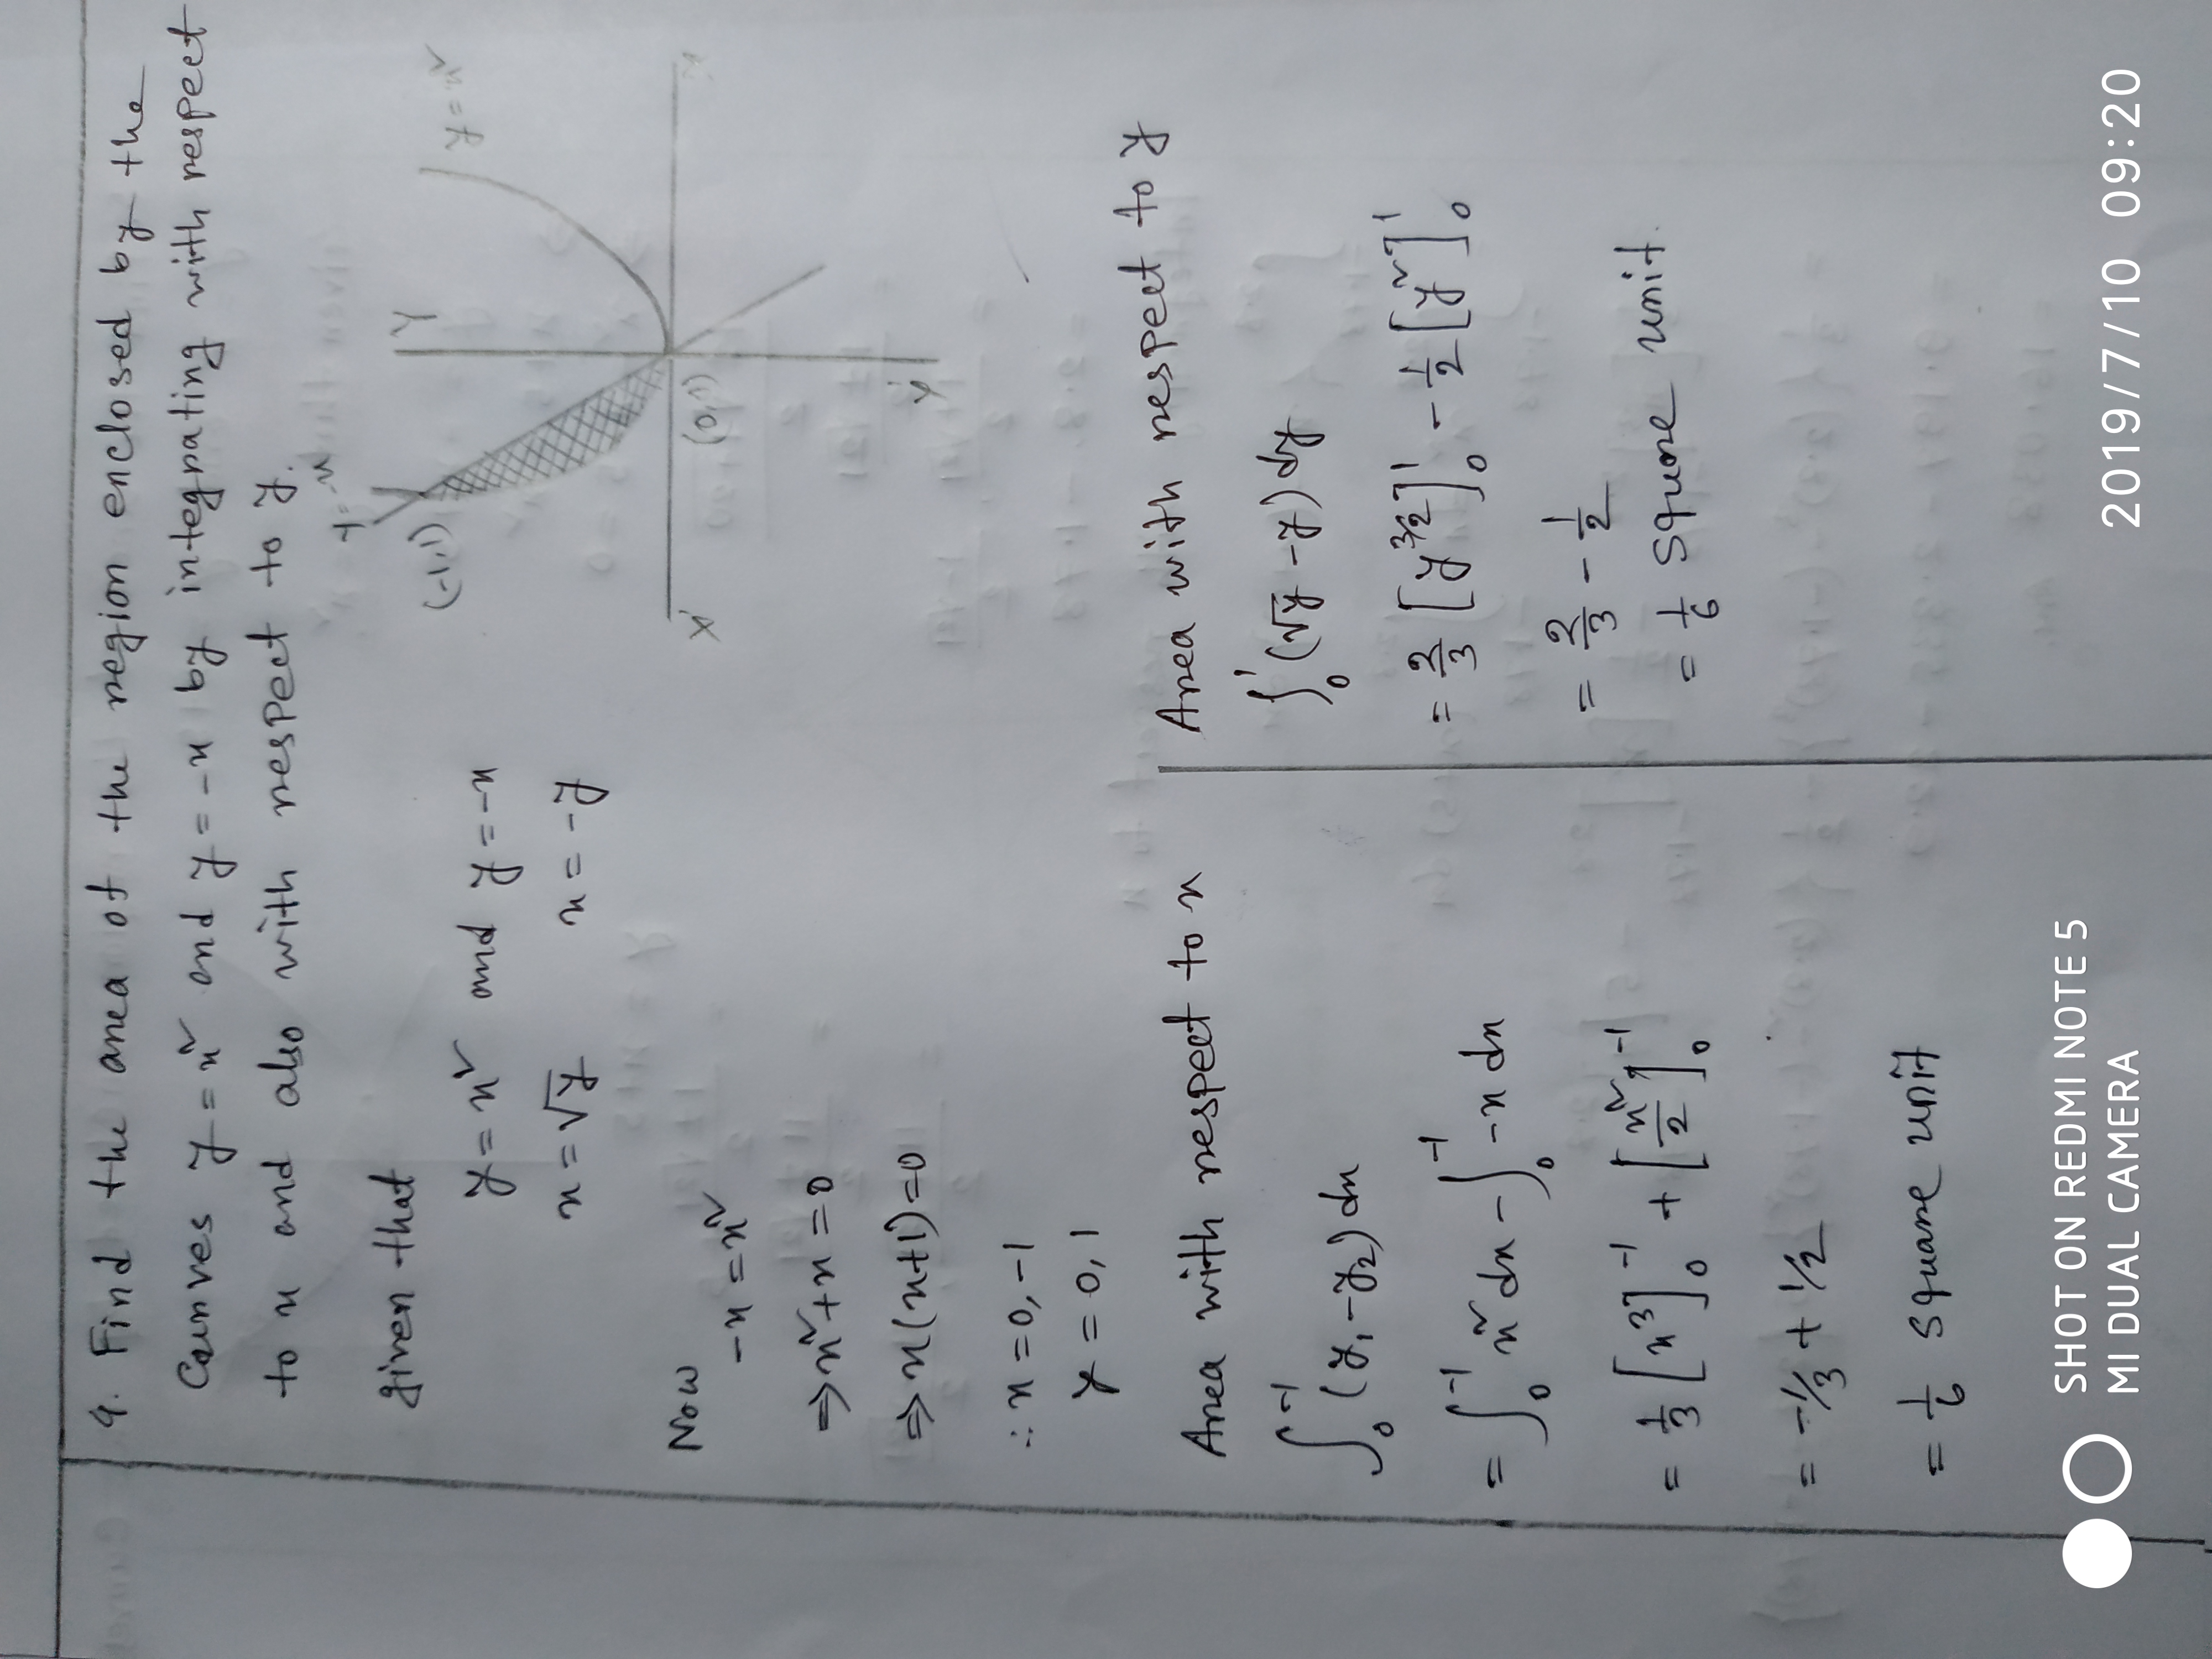 9. Find the area of the region enclosed by the
Curves y = x² and y = -x by integrating with respect
to x and also with respect to y.
given that
y = x² and y = -x
x = √y x = -y
y = -x
(-1,1)
Y
y = x²
X'
(0,1)
Y'
Now
-x = x²
⇒ x² + x = 0
⇒ x(x+1) = 0
∴ x = 0, -1
y = 0, 1
Area with respect to x
∫₀⁻¹ (y₁ - y₂) dx
= ∫₀⁻¹ x² dx - ∫₀⁻¹ -x dx
= 1/3 [x³]₀⁻¹ + [x²/2]₀⁻¹
= -1/3 + 1/2
= 1/6 square unit
Area with respect to y
∫₀¹ (√y - y) dy
= 2/3 [y^3/2]₀¹ - 1/2 [y²]₀¹
= 2/3 - 1/2
= 1/6 square unit.
SHOT ON REDMI NOTE 5
MI DUAL CAMERA
2019/7/10 09:20